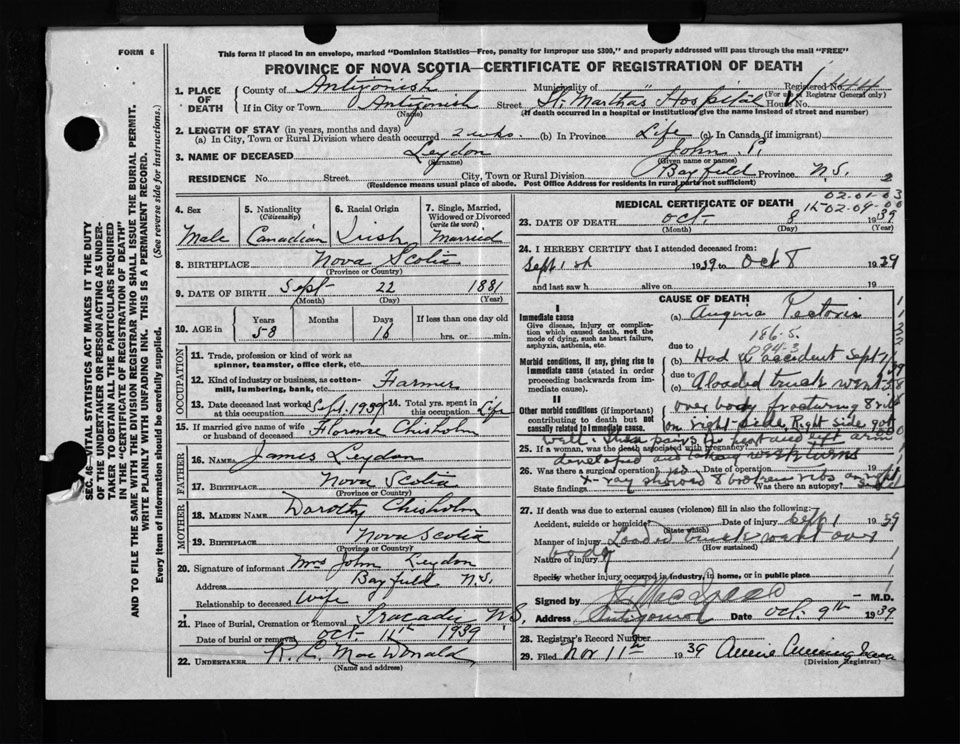 FORM 6
This form if placed in an envelope, marked "Dominion Statistics—Free, penalty for improper use $300," and properly addressed will pass through the mail "FREE"
PROVINCE OF NOVA SCOTIA—CERTIFICATE OF REGISTRATION OF DEATH
SEC. 46—VITAL STATISTICS ACT MAKES IT THE DUTY
OF THE UNDERTAKER OR PERSON ACTING AS UNDER-
TAKER TO OBTAIN ALL THE PARTICULARS REQUIRED
IN THE "CERTIFICATE OF REGISTRATION OF DEATH"
AND TO FILE THE SAME WITH THE DIVISION REGISTRAR WHO SHALL ISSUE THE BURIAL PERMIT.
WRITE PLAINLY WITH UNFADING INK. THIS IS A PERMANENT RECORD.
Every item of information should be carefully supplied. (See reverse side for instructions.)
1. PLACE OF DEATH
County of Antigonish Municipality of Registered No.
(For use of Registrar General only)
If in City or Town Antigonish Street St. Martha's Hospital House No.
(Name) (If death occurred in a hospital or institution, give the name instead of street and number)
2. LENGTH OF STAY (in years, months and days)
(a) In City, Town or Rural Division where death occurred 2 wks. (b) In Province Life (c) In Canada (if immigrant)
3. NAME OF DECEASED Leydon John P.
(Surname) (Given name or names)
RESIDENCE No. Street City, Town or Rural Division Bayfield Province N.S.
(Residence means usual place of abode. Post Office Address for residents in rural parts not sufficient)
4. Sex Male
5. Nationality (Citizenship) Canadian
6. Racial Origin Irish
7. Single, Married, Widowed or Divorced (write the word) Married
8. BIRTHPLACE Nova Scotia
(Province or Country)
9. DATE OF BIRTH Sept 22 1881
(Month) (Day) (Year)
10. AGE in Years 58 Months Days 16 If less than one day old
hrs. or min.
OCCUPATION
11. Trade, profession or kind of work as
spinner, teamster, office clerk, etc.
12. Kind of industry or business, as cotton-
mill, lumbering, bank, etc. Farmer
13. Date deceased last worked at this occupation Sept. 1939 14. Total yrs. spent in this occupation Life
15. If married give name of wife
or husband of deceased Florence Chisholm
FATHER
16. NAME James Leydon
17. BIRTHPLACE Nova Scotia
(Province or Country)
MOTHER
18. MAIDEN NAME Dorothy Chisholm
19. BIRTHPLACE Nova Scotia
(Province or Country)
20. Signature of informant Mrs John Leydon
Address Bayfield N.S.
Relationship to deceased Wife
21. Place of Burial, Cremation or Removal Tracadie N.S.
Date of burial or removal Oct 11th 1939
22. UNDERTAKER R. C. MacDonald
MEDICAL CERTIFICATE OF DEATH
23. DATE OF DEATH Oct 8th 1939
(Month) (Day) (Year)
24. I HEREBY CERTIFY that I attended deceased from:
Sept 1st 1939 to Oct 8 1939
and last saw h alive on 19
CAUSE OF DEATH
I
Immediate cause
Give disease, injury or complica-
tion which caused death, not the
mode of dying, such as heart failure,
asphyxia, asthenia, etc.
(a) Angina Pectoris
186-5
due to
Morbid conditions, if any, giving rise to
immediate cause (stated in order
proceeding backwards from im-
mediate cause).
(b) Had accident Sept 1/39
due to
(c) A loaded truck went
II
Other morbid conditions (if important)
contributing to death but not
causally related to immediate cause.
over body fracturing 8 ribs
on right side. Right side got
well. Then pains in heart and left arm
25. If a woman, was the death associated with pregnancy?
developed
26. Was there a surgical operation? Date of operation 19
X-ray showed 8 broken ribs on right
State findings Was there an autopsy?
27. If death was due to external causes (violence) fill in also the following:
Accident, suicide or homicide? Date of injury Sept 1 1939
(State which)
Manner of injury Loaded truck went over
(How sustained)
body
Nature of injury
Specify whether injury occurred in industry, in home, or in public place
Signed by M.D.
Address Antigonish Date Oct. 9th 1939
28. Registrar's Record Number
29. Filed Nov 11th 1939
(Division Registrar)